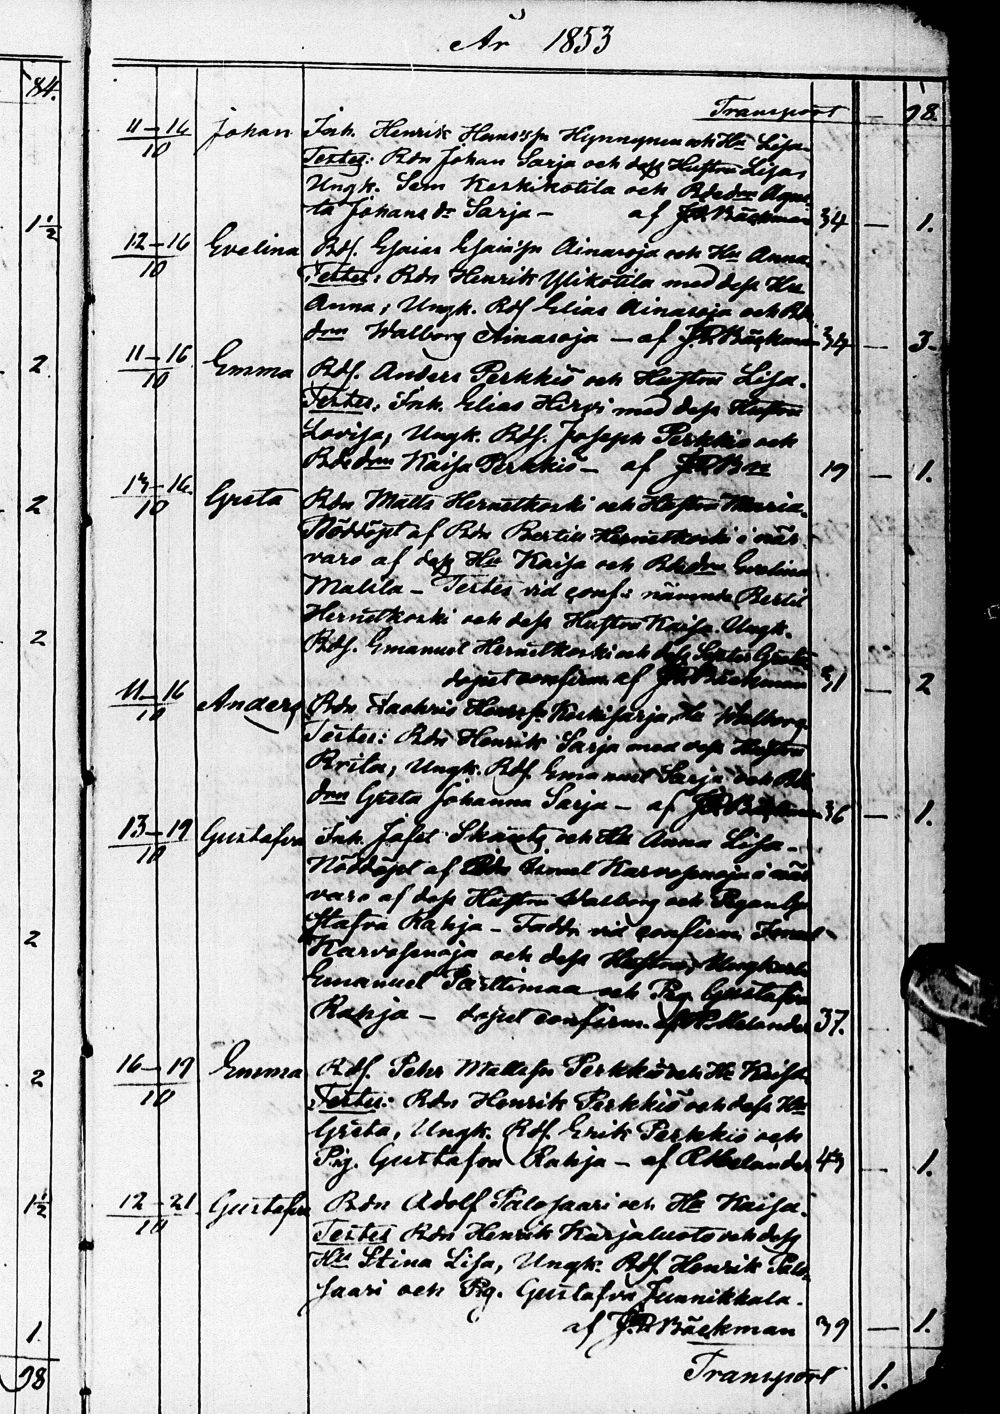 År 1853
84.
Transport — 98.
11–16/10 Johan Inh. Henrik Henriksn Hynnynen och Hu Lisa.
Testes: Bdn Johan Sarja och dess Hustru Lisa,
Ungk. Sem Keskikotila och Bdedrn Agne-
ta Johans dr Sarja — af J.R. Bäckman 34 — 1.
1½
12–16/10 Evelina Bds. Esaias Esaiasn Ainasoja och Hu Anna.
Testes: Bdn Henrik Ylikotila med dess Hu
Anna; Ungk. Bds Elias Ainasoja och Bde
drn Walborg Ainasoja — af J.R. Bäckman 34 — 3.
2
11–16/10 Emma Bds. Anders Perkkiö och Hustru Lisa.
Testes: Inh. Elias Hirvi med dess Hustru
Lovisa, Ungk. Bds. Joseph Perkkiö och
Bdedrn Kaisa Perkkiö — af J.R. Bn 19 — 1.
2
13–16/10 Greta Bdn Matts Hernetkoski och Hustru Maria.
Nöddöpt af Bdn Bertil Hernetkoski i när-
varo af dess Hu Kaisa och Bdedrn Evelina
Malila — Testes vid conf: nämnde Bertil
Hernetkoski och dess Hustru Kaisa. Ungk.
2
Bds. Emanuel Hernetkoski och dess Syster Greta
dopet confirm. af J.R. Bäckman 31 — 2
11–16/10 Anders Bdn Zachris Henrsn Keskisarja, Hu Walborg.
Testes: Bdn Henrik Sarja med dess Hustru
Brita, Ungk. Bds Emanuel Sarja och Bde
drn Greta Johanna Sarja — af J.R. Bäckman 36 — 1.
13–19/10 Gustafva Inh. Jafet Skantz och Hu Anna Lisa —
Nöddöpt af Bdn Ismael Karvosenoja i när
varo af dess Hustru Walborg och Pigan Gu
stafva Rahja — Faddr vid confirm. Ismael
2
Karvosenoja och dess Hustru, Ungkarl
Emanuel Palttimaa och Pig. Gustafva
Rahja — dopet confirm. af Helander 37.
2
16–19/10 Emma Bds. Pehr Mattssn Perkkiö och Hu Kaisa
Testes: Bdn Henrik Perkkiö och dess Hu
Greta, Ungk. Bds. Erik Perkkiö och
Pig. Gustafva Rahja — af Helander 43 — 1.
1½
12–21/10 Gustafva Bdn Adolf Palosaari och Hu Kaisa.
Testes Bdn Henrik Karjaluoto och dess
Hu Stina Lisa, Ungk. Bds. Henrik Palo-
saari och Pig. Gustafva Junnikkala.
1.
af J.R. Bäckman 39 — 1.
98
Transport 1.